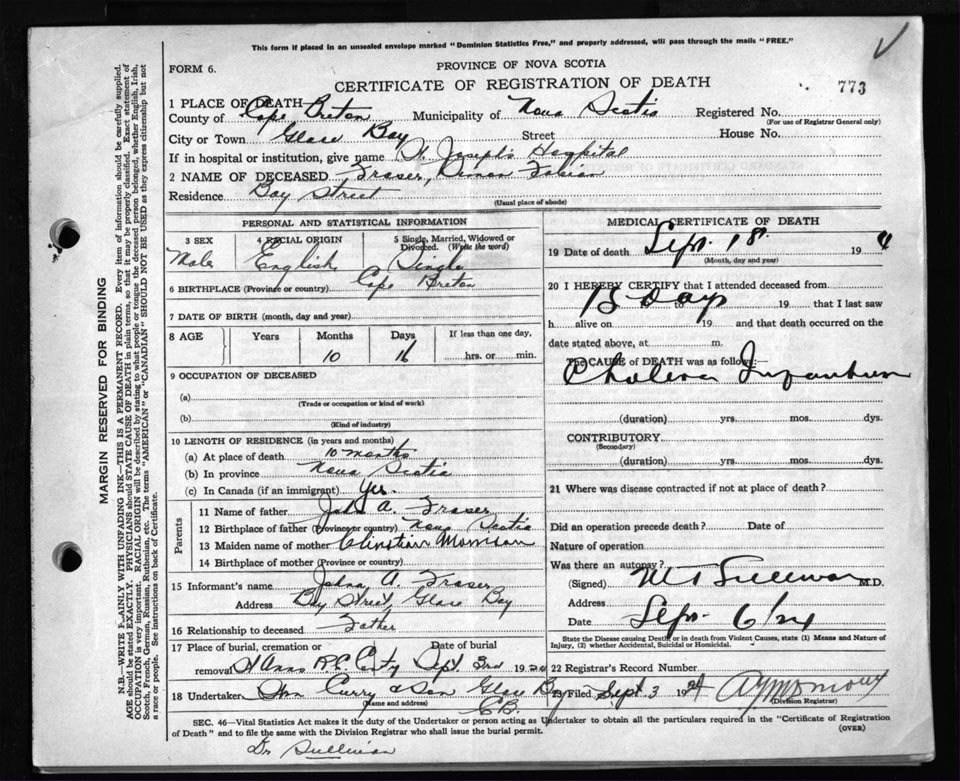 This form if placed in an unsealed envelope marked "Dominion Statistics Free," and properly addressed, will pass through the mails "FREE."
FORM 6.
PROVINCE OF NOVA SCOTIA
CERTIFICATE OF REGISTRATION OF DEATH
773
1 PLACE OF DEATH
County of Cape Breton Municipality of Nova Scotia Registered No.
(For use of Registrar General only)
City or Town Glace Bay Street House No.
If in hospital or institution, give name St. Joseph's Hospital
2 NAME OF DECEASED Fraser, Fabian
Residence Bay Street
(Usual place of abode)
PERSONAL AND STATISTICAL INFORMATION
3 SEX 4 RACIAL ORIGIN 5 Single, Married, Widowed or Divorced. (Write the word)
Male English Single
6 BIRTHPLACE (Province or country) Cape Breton
7 DATE OF BIRTH (month, day and year)
8 AGE Years Months Days If less than one day,
10 16 hrs. or min.
9 OCCUPATION OF DECEASED
(a)
(Trade or occupation or kind of work)
(b)
(Kind of industry)
10 LENGTH OF RESIDENCE (in years and months)
(a) At place of death 10 months
(b) In province Nova Scotia
(c) In Canada (if an immigrant) Yes.
Parents
11 Name of father John A. Fraser
12 Birthplace of father (Province or country) Nova Scotia
13 Maiden name of mother Morrison
14 Birthplace of mother (Province or country)
15 Informant's name A. Fraser
Address Bay Street, Glace Bay
16 Relationship to deceased Father
17 Place of burial, cremation or removal St Anns R.C. Cemty Date of burial Sept 3rd 19 24
18 Undertaker Curry & Son Glace Bay
(Name and address)
C.B.
MEDICAL CERTIFICATE OF DEATH
19 Date of death Sept. 1st. 19 4
(Month, day and year)
20 I HEREBY CERTIFY that I attended deceased from
15 Days to 19 that I last saw
h alive on 19 and that death occurred on the
date stated above, at m.
The CAUSE of DEATH was as follows:—
Cholera Infantum
(duration) yrs. mos. dys.
CONTRIBUTORY
(Secondary)
(duration) yrs. mos. dys.
21 Where was disease contracted if not at place of death?
Did an operation precede death? Date of
Nature of operation
Was there an autopsy?
(Signed) M T Sullivan M.D.
Address
Date Sept 6/24
State the Disease causing Death, or in death from Violent Causes, state (1) Means and Nature of Injury, (2) whether Accidental, Suicidal or Homicidal.
22 Registrar's Record Number
23 Filed Sept. 3 19 24
(Division Registrar)
SEC. 46—Vital Statistics Act makes it the duty of the Undertaker or person acting as Undertaker to obtain all the particulars required in the "Certificate of Registration
of Death" and to file the same with the Division Registrar who shall issue the burial permit.
(OVER)
Dr Sullivan
MARGIN RESERVED FOR BINDING
N.B.—WRITE PLAINLY WITH UNFADING INK—THIS IS A PERMANENT RECORD. Every item of information should be carefully supplied.
AGE should be stated EXACTLY. PHYSICIANS should STATE CAUSE OF DEATH in plain terms, so that it may be properly classified. Exact statement of
OCCUPATION is very important. RACIAL ORIGIN will be described by stating to what people or tongue the deceased person belonged, whether English, Irish,
Scotch, French, German, Russian, Ruthenian, etc. The terms "AMERICAN" or "CANADIAN" SHOULD NOT BE USED as they express citizenship but not
a race or people. See instructions on back of Certificate.